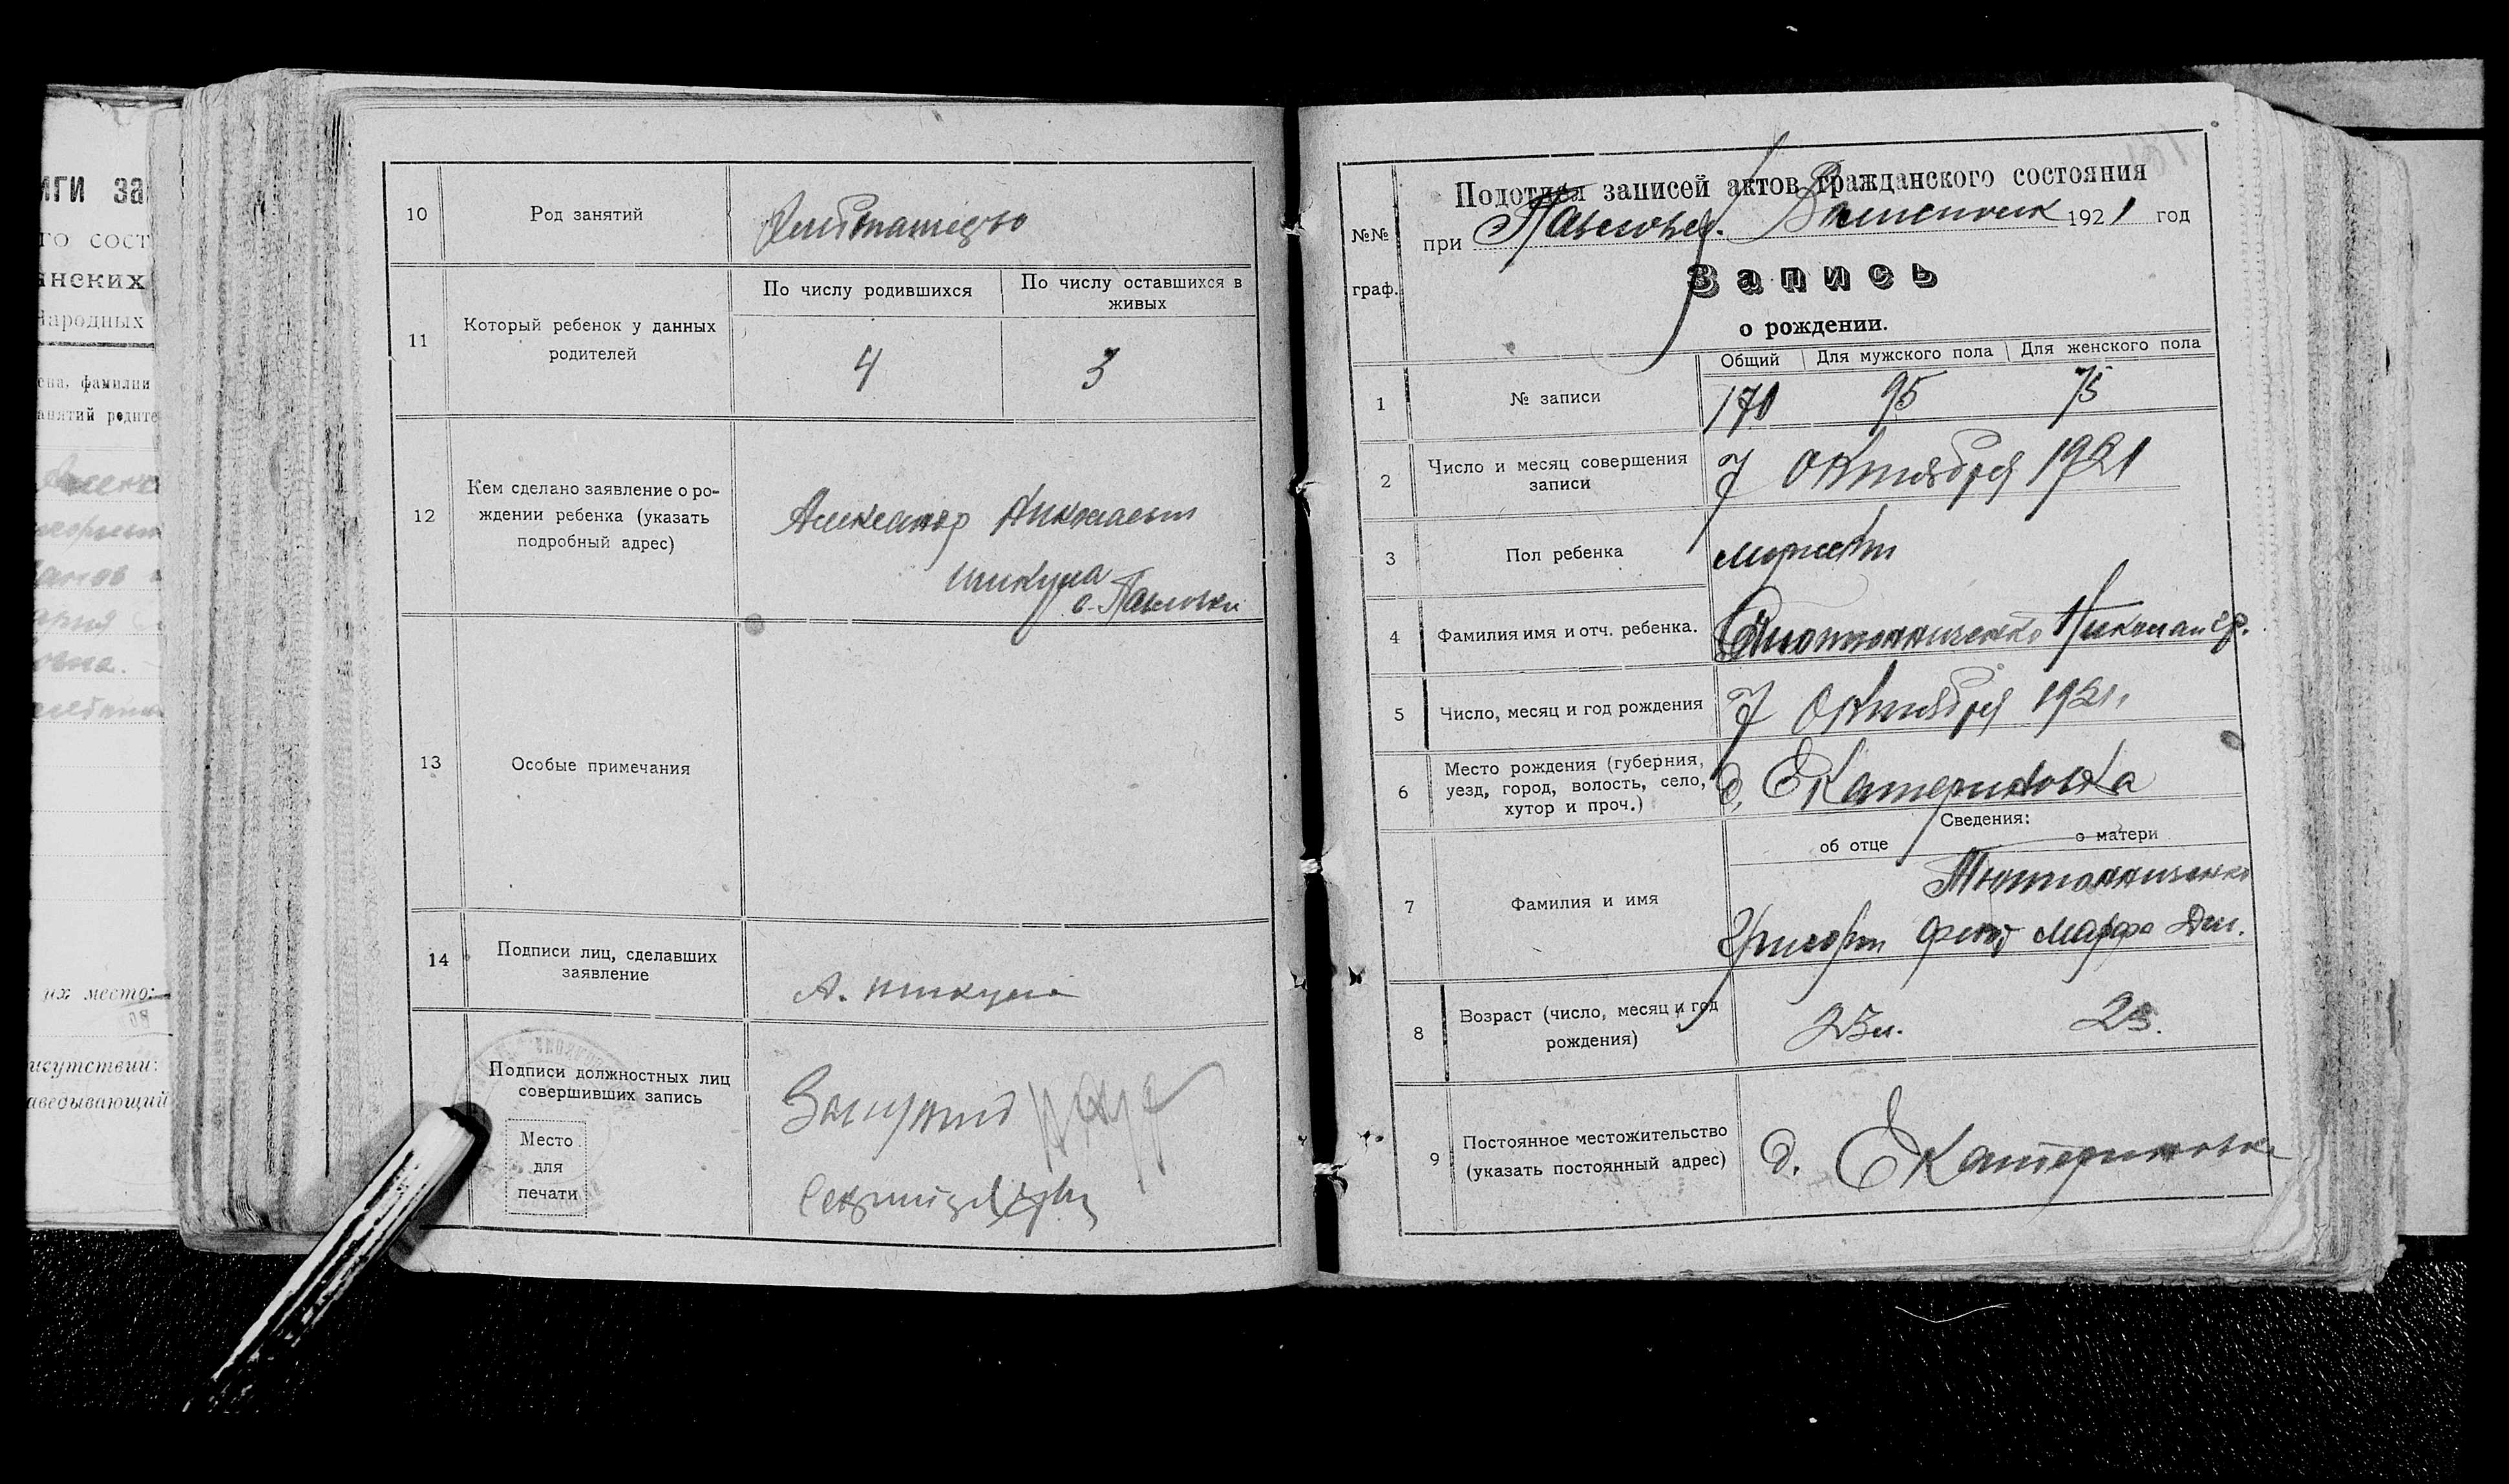 ИГИ ЗА
ГО СОСТ
АНСКИХ
Народных
ена, фамилии
анятий родите
их место:
исутствии:
аведывающий
10
Род занятий
Хлебопашество
11
Который ребенок у данных
родителей
По числу родившихся
По числу оставшихся в
живых
4
3
12
Кем сделано заявление о ро-
ждении ребенка (указать
подробный адрес)
Александр Николаевич
Шикула
с. Павловки
13
Особые примечания
14
Подписи лиц, сделавших
заявление
А. Шикула
Подписи должностных лиц
совершивших запись
Место
для
печати
№№
граф.
Подотдел записей актов гражданского состояния
при Павловск. Волисполк 1921 год
Запись
о рождении.
Общий Для мужского пола Для женского пола
1
№ записи
170 95 75
2
Число и месяц совершения
записи
7 Октября 1921
3
Пол ребенка
4
Фамилия имя и отч. ребенка.
Николай Гр.
5
Число, месяц и год рождения
7 Октября 1921
6
Место рождения (губерния,
уезд, город, волость, село,
хутор и проч.)
д. Екатериновка
Сведения:
об отце
о матери
7
Фамилия и имя
Григорий Фед Марфа Дем.
8
Возраст (число, месяц и год
рождения)
23 л. 23.
9
Постоянное местожительство
(указать постоянный адрес)
д. Екатериновка